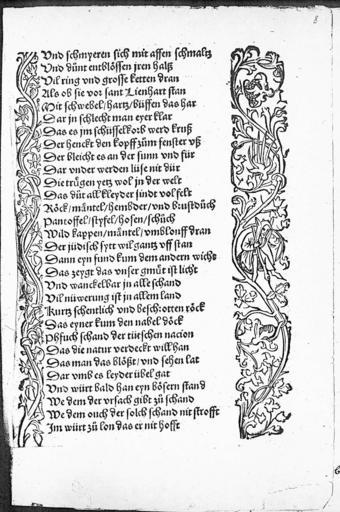 8
Vnd schmyeren sich mit affen schmaltz
Vnd důnt entblössen jren halß
Vil ring vnd grosse ketten dran
Als ob sie vor sant Lienhart stan
Mit schwebel/hartz/büffen das har
Dar jn schlecht man eyer klar
Das es jm schüsselkorb werd kruß
Der henckt den kopff zům fenster vß
Der bleicht es an der sunn vnd für
Dar vnder werden lüse nit dür
Die trügen yetz wol jn der welt
Das důt all kleyder sindt vol felt
Röck/mäntel/hembder/vnd brustdůch
Pantoffel/styfel/hosen/schůch
Wild kappen/mäntel/vmblouff dran
Der jüdisch sytt wil gantz vff stan
Dann eyn fund kum dem andern wicht
Das zeygt das vnser gmüt ist licht
Vnd wanckelbar jn alle schand
Vil nüwerung ist jn allem land
Kurtz schentlich vnd beschrotten röck
Das eyner kum den nabel döck
Pfuch schand der tütschen nacion
Das die natur verdeckt will han
Das man das blößt/vnd sehen lat
Dar vmb es leyder übel gat
Vnd würt bald han eyn bösern stand
We dem der vrsach gibt zů schand
We dem ouch der solch schand nit strofft
Im würt zů lon das er nit hofft